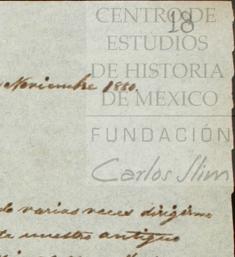 CENTRO DE
18
ESTUDIOS
DE HISTORIA
Noviembre 1880.
DE MEXICO
FUNDACIÓN
Carlos Slim
varias veces dirigirme
nuestro antiguo